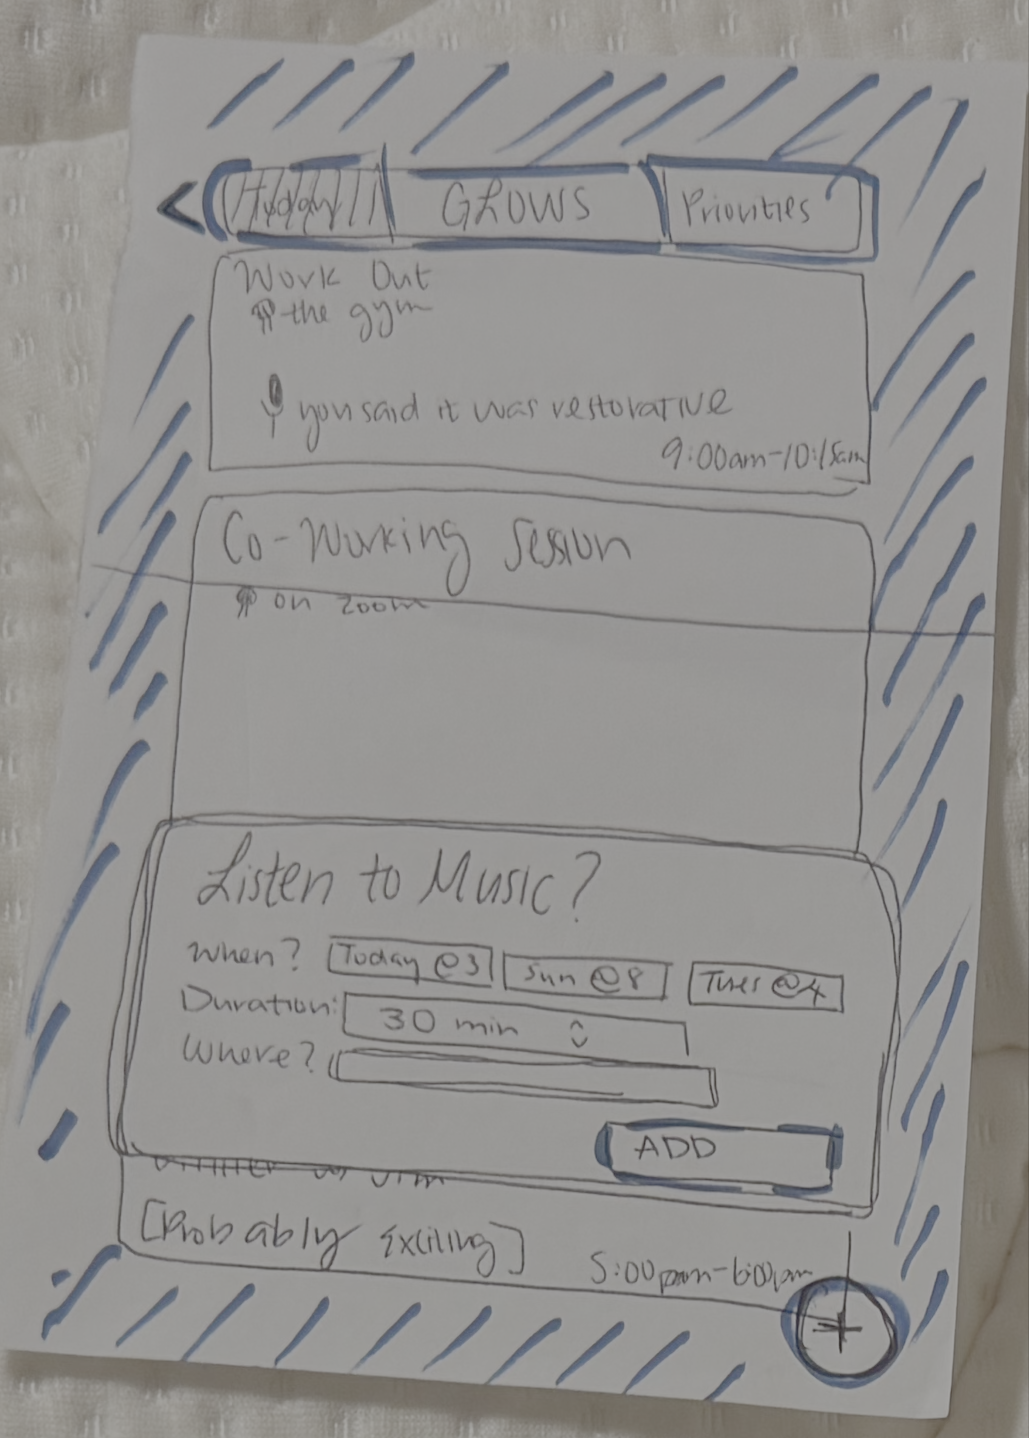 < Today GLOWS Priorities
Work Out
the gym
you said it was restorative
9:00am-10:15am
Co-Working Session
on zoom
Listen to Music?
When? Today @3 Sun @8 Tues @4
Duration: 30 min
Where?
ADD
[Probably Exciting]
5:00pm-6:00pm
+